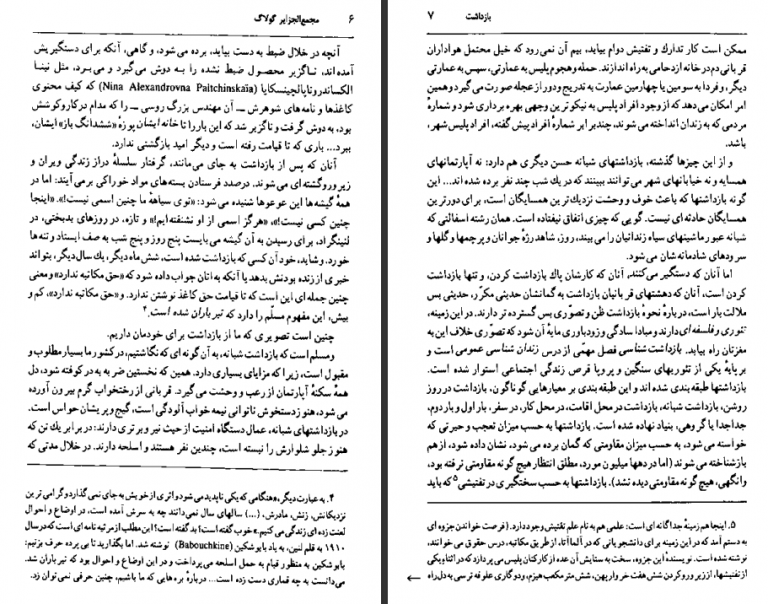 ۶ مجمع‌الجزایر گولاگ
آنچه در خلال ضبط به دست بیاید، برده می‌شود، و گاهی، آنکه برای دستگیریش
آمده‌اند، ناگزیر محصول ضبط نشده را به دوش می‌گیرد و می‌برد، مثل نینا
الکساندروناپالچینسکایا (Nina Alexandrovna Paitchinskaïa) که کیف محتوی
کاغذها و نامه‌های شوهرش ـ آن مهندس بزرگ روسی ـ را که مدام درکاروکوشش
بود، به‌دوش گرفت و ناگزیر شد که این باررا تا خانه ایشان پوزه «ششدانگ باز» ایشان،
ببرد... باری که تا قیامت رفته است و دیگر امید بازگشتی ندارد.
آنان که پس از بازداشت به جای می‌مانند، گرفتار سلسلهٔ دراز زندگی ویران و
زیرورو گشته‌ای می‌شوند. درصدد فرستادن بسته‌های مواد خوراکی برمی‌آیند: اما در
همهٔ گیشه‌ها این عوعوها شنیده می‌شود: «توی سیاههٔ ما چنین اسمی نیست!»، «اینجا
چنین کسی نیست!»، «هرگز اسمی از او نشنفته‌ایم!» و تازه، در روزهای بدبختی، در
لنینگراد، برای رسیدن به آن گیشه می‌بایست پنج روز و پنج شب به صف ایستاد و تنه‌ها
خورد. و شاید، خود آن کسی که بازداشت شده است، شش ماه دیگر، یك سال دیگر، بتواند
خبری از زنده بودنش بدهد یا آنکه به آنان جواب داده شود که «حق مکاتبه ندارد» و معنی
چنین جمله‌ای این است که تا قیامت حق کاغذ نوشتن ندارد. و «حق مکاتبه ندارد»، کم و
بیش، این مفهوم مسلّم را دارد که تیرباران شده است.۴
چنین است تصویری که ما از بازداشت برای خودمان داریم.
ومسلم است که بازداشت شبانه، به آن گونه‌ای که نگاشتیم، در کشور ما بسیار مطلوب و
مقبول است، زیرا که مزایای بسیاری دارد. همین که نخستین ضربه به در کوفته شد، دل
همهٔ سکنهٔ آپارتمان از رعب و وحشت می‌گیرد. قربانی از رختخواب گرم بیرون آورده
می‌شود، هنوز دستخوش ناتوانی نیمه خواب آلودگی است، گیج و پریشان حواس است.
در بازداشتهای شبانه، عمال دستگاه امنیت از حیث نیرو برتری دارند: در برابر یك تن که
هنوز جلو شلوارش را نبسته است، چندین نفر هستند و اسلحه دارند. در خلال مدتی که
۴. به عبارت دیگر، «هنگامی که یکی ناپدید می‌شود و اثری از خویش به جای نمی‌گذارد و گرامی‌ترین
نزدیکانش، زنش، مادرش، (...) سالهای سال نمی‌دانند چه به سرش آمده است، در اوضاع و احوال
لعنت زده‌ای زندگی می‌کنیم.» خوب گفته است؟ بد گفته است؟ این مطلب از مرثیه نامه‌ای است که در سال
۱۹۱۰ به قلم لنین، به یاد بابوشکین (Babouchkine) نوشته شد. اما بگذارید تا بی پرده حرف بزنیم:
بابوشکین به منظور قیام به حمل اسلحه می‌پرداخت و در این اوضاع و احوال بود که تیرباران شد.
می‌دانست به چه قماری دست زده است... دربارهٔ بره‌هایی که ما باشیم، چنین حرفی نمی‌توان زد.
بازداشت ۷
ممکن است کار تدارك و تفتیش دوام بیابد، بیم آن نمی‌رود که خیل محتمل هواداران
قربانی دم در خانه ازدحامی به راه اندازند. حمله و هجوم پلیس به عمارتی، سپس به عمارتی
دیگر، و فردا به سومین یا چهارمین عمارت به تدریج و دور از عجله صورت می‌گیرد و همین
امر امکان می‌دهد که از وجود افراد پلیس به نیکوترین وجهی بهره برداری شود و شمارهٔ
مردمی که به زندان انداخته می‌شوند، چندبرابر شمارهٔ افراد پیش گفته، افراد پلیس شهر،
باشد.
و از این چیزها گذشته، بازداشتهای شبانه حسن دیگری هم دارد: نه آپارتمانهای
همسایه و نه خیابانهای شهر می‌توانند ببینند که در یك شب چند نفر برده شده‌اند... این
گونه بازداشتها که باعث خوف و وحشت نزدیك‌ترین همسایگان است، برای دورترین
همسایگان حادثه‌ای نیست. گویی که چیزی اتفاق نیفتاده است. همان رشته اسفالتی که
شبانه عبور ماشینهای سیاه زندانیان را می‌بیند، روز، شاهد رژهٔ جوانان و پرچمها و گلها و
سرودهای شادمانه‌شان می‌شود.
اما آنان که دستگیر می‌کنند، آنان که کارشان پاك بازداشت کردن، و تنها بازداشت
کردن است، آنان که دهشتهای قربانیان بازداشت به گمانشان حدیثی مکرّر، حدیثی بس
ملالت بار است، دربارهٔ نحوهٔ بازداشت ظن و تصوّری بس گسترده‌تر دارند. در این زمینه،
تئوری و فلسفه‌ای دارند و مبادا سادگی و زودباوری مایهٔ آن شود که تصوّری خلاف این به
مغزتان راه بیابد. بازداشت شناسی فصل مهمّی از درس زندان شناسی عمومی است و
بر پایهٔ یکی از تئوریهای سنگین و پروپا قرص زندگی اجتماعی استوار شده است.
بازداشتها طبقه بندی شده‌اند و این طبقه بندی بر معیارهایی گوناگون، بازداشت در روز
روشن، بازداشت شبانه، بازداشت در محل اقامت، در محل کار، در سفر، بار اول و بار دوم،
جداجدا یا گروهی، بنیاد نهاده شده است. بازداشتها به حسب میزان تعجب و حیرتی که
خواسته می‌شود، به حسب میزان مقاومتی که گمان برده می‌شود، نشان داده شود، از هم
بازشناخته می‌شوند (اما در دهها میلیون مورد، مطلق انتظار هیچ گونه مقاومتی نرفته بود،
وانگهی، هیچ گونه مقاومتی دیده نشد). بازداشتها به حسب سختگیری در تفتیشی۵ که باید
۵. اینجا هم زمینهٔ جداگانه‌ای است: علمی هم به نام علم تفتیش وجود دارد. (فرصت خواندن جزوه‌ای
به دستم آمد که در این زمینه برای دانشجویانی که در آلماآتا، از طریق مکاتبه، درس حقوق می‌خوانند،
نوشته شده است. نویسندهٔ این جزوه، سخت به ستایش آن عده از کارکنان پلیس می‌پردازد که در اثنای یکی
از تفتیشها، از زیر و رو کردن شش هفت خروار پهن، شش متر مکعب هیزم، و دو گاری علوفه ترسی به دل راه
←